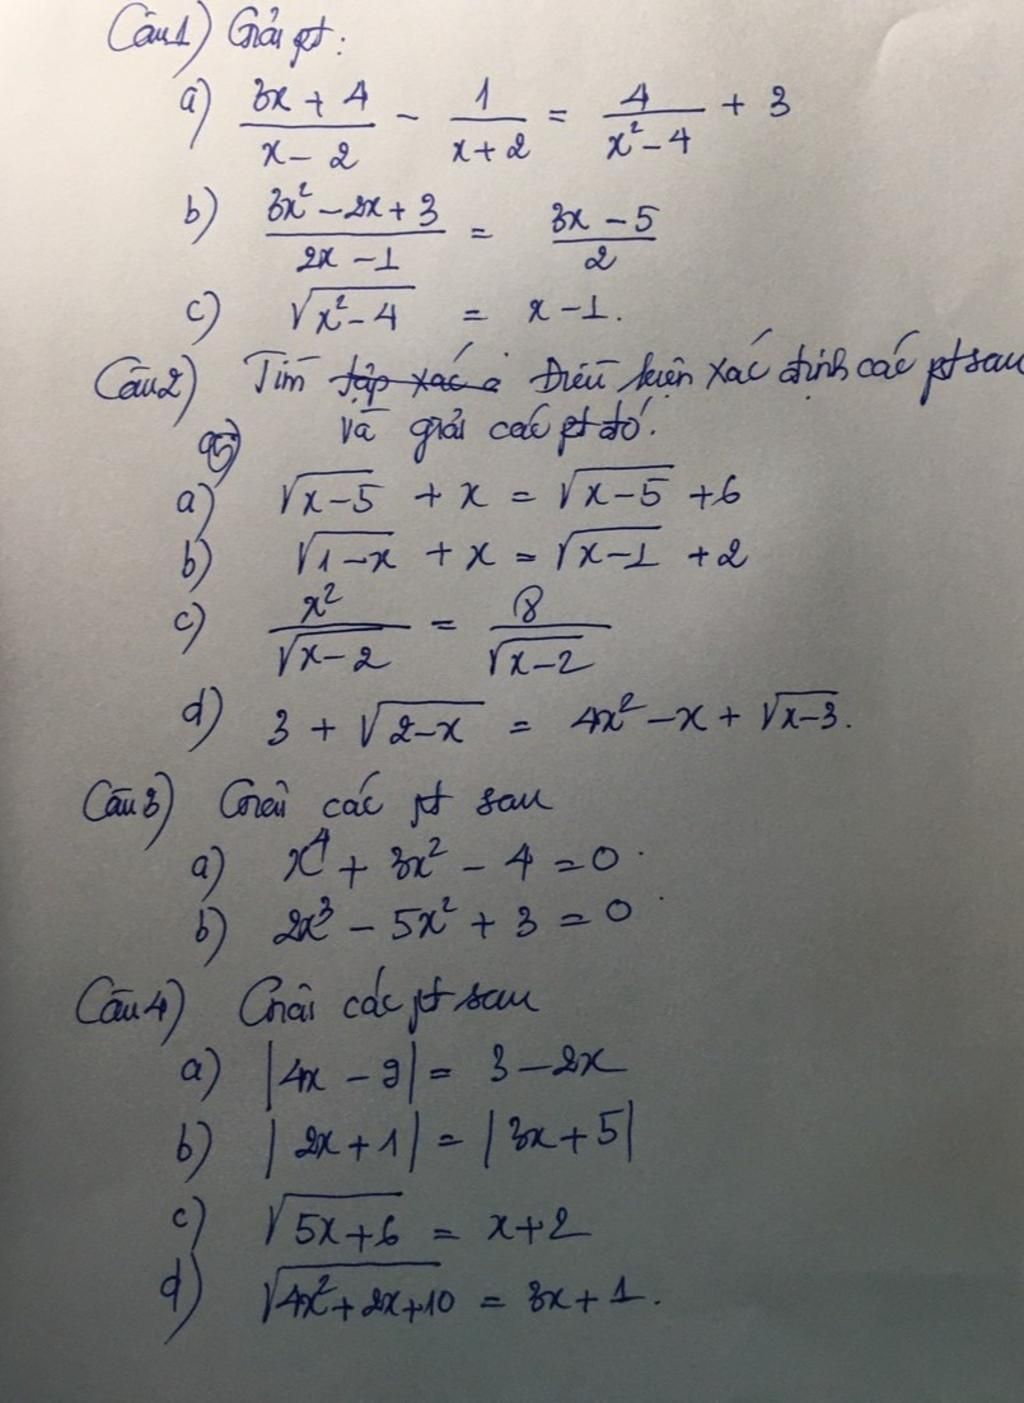 Câu 1) Giải pt:
a) (3x + 4)/(x - 2) - 1/(x + 2) = 4/(x² - 4) + 3
b) (3x² - 2x + 3)/(2x - 1) = (3x - 5)/2
c) √(x² - 4) = x - 1.
Câu 2) Tìm tập xác Điều kiện xác định các pt sau
và giải các pt đó.
a) √(x - 5) + x = √(x - 5) + 6
b) √(1 - x) + x = √(x - 1) + 2
c) x²/√(x - 2) = 8/√(x - 2)
d) 3 + √(2 - x) = 4x² - x + √(x - 3).
Câu 3) Giải các pt sau
a) x⁴ + 3x² - 4 = 0
b) 2x³ - 5x² + 3 = 0
Câu 4) Giải các pt sau
a) |4x - 9| = 3 - 2x
b) |2x + 1| = |3x + 5|
c) √(5x + 6) = x + 2
d) √(4x² + 2x + 10) = 3x + 1.